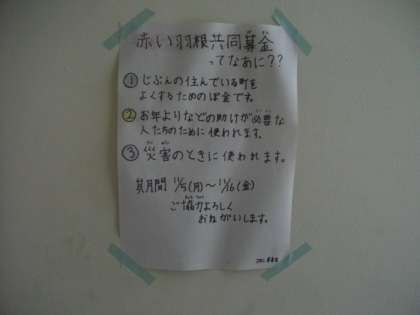 赤い羽根共同募金
ってなあに??
① じぶんの住んでいる町を
よくするためのぼ金です。
② お年よりなどの助けが必要な
人たちのために使われます。
③ 災害のときに使われます。
期間 11/5(月)～11/16(金)
ご協力よろしく
おねがいします。